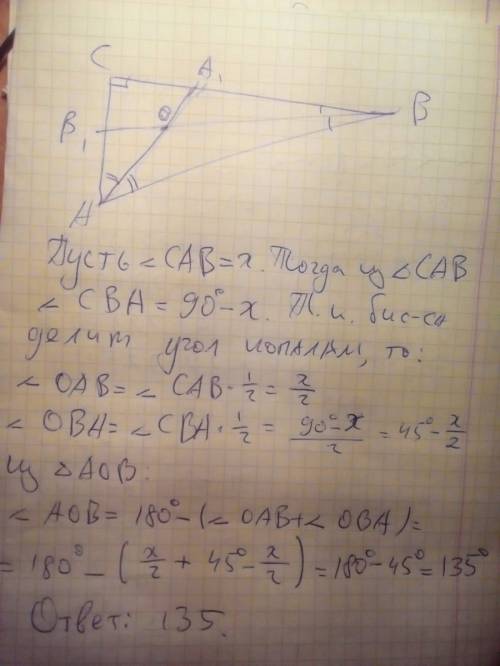 C
A₁
B₁
O
B
A
Пусть ∠CAB=x. Тогда из △CAB
∠CBA = 90°-x. Т.к. бис-са
делит угол пополам, то:
∠OAB=∠CAB·1/2=x/2
∠OBA=∠CBA·1/2=(90°-x)/2=45°-x/2
из △AOB:
∠AOB=180°-(∠OAB+∠OBA)=
=180°-(x/2+45°-x/2)=180°-45°=135°
Ответ: 135.